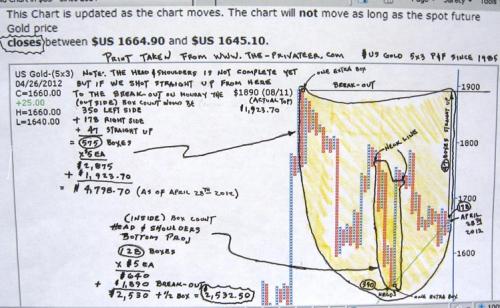 This Chart is updated as the chart moves. The chart will not move as long as the spot future
Gold price
closes between $US 1664.90 and $US 1645.10.
PRINT TAKEN FROM WWW.THE-PRIVATEER.COM
$US GOLD 5X3 P&F SINCE 1985
US Gold-(5x3)
04/26/2012
C=1660.00
+25.00
H=1660.00
L=1640.00
NOTE: THE HEAD & SHOULDERS IS NOT COMPLETE YET
BUT IF WE SHOT STRAIGHT UP FROM HERE
TO THE BREAK-OUT ON MONDAY THE
(OUT SIDE) BOX COUNT WOULD BE
350 LEFT SIDE
+ 178 RIGHT SIDE
+ 47 STRAIGHT UP
= 575 BOXES
X $5 EA
$2,875
+ $1,923.70
= $4,798.70 (AS OF APRIL 28TH 2012)
$1890 (08/11)
(ACTUAL TOP)
$1,923.70
ONE EXTRA BOX
BREAK-OUT
1900
1800
1700
1600
NECK LINE
47 BOXES STRAIGHT UP
178
APRIL
28TH
2012
(INSIDE) BOX COUNT
HEAD & SHOULDERS
BOTTOM PROJ
128 BOXES
X $5 EA
$640
+ $1,890 BREAK-OUT
= $2,530 + ½ BOX = $2,532.50
HEAD
ONE EXTRA BOX